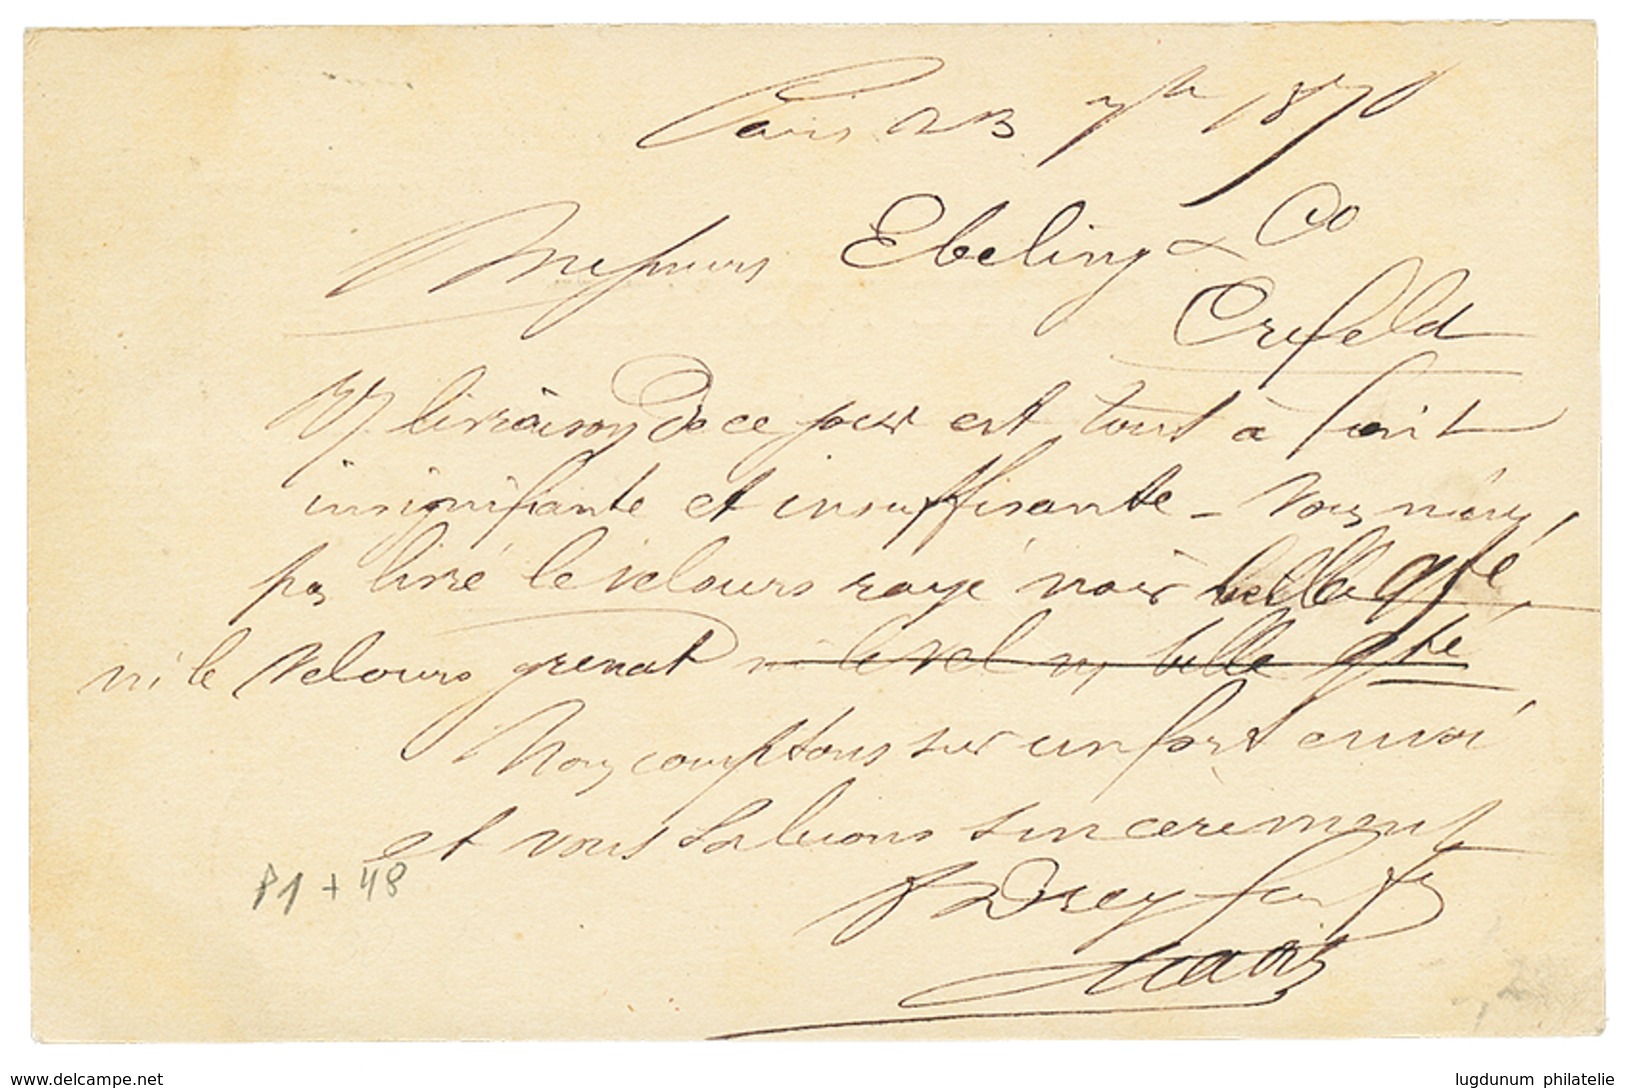 Paris 23 7bre 1878
Messieurs Ebeling & Co
Crefeld
V/ livraison de ce jour est tout à fait
insignifiante et insuffisante – Vous n'avez
pas livré le velours rayé noir belle qté,
ni le velours grenat ni le vel belle qté
Nous comptons sur un fort envoi
et vous saluons sincèrement
Dreyfus
P1 + 48
www.delcampe.net
lugdunum philatelie